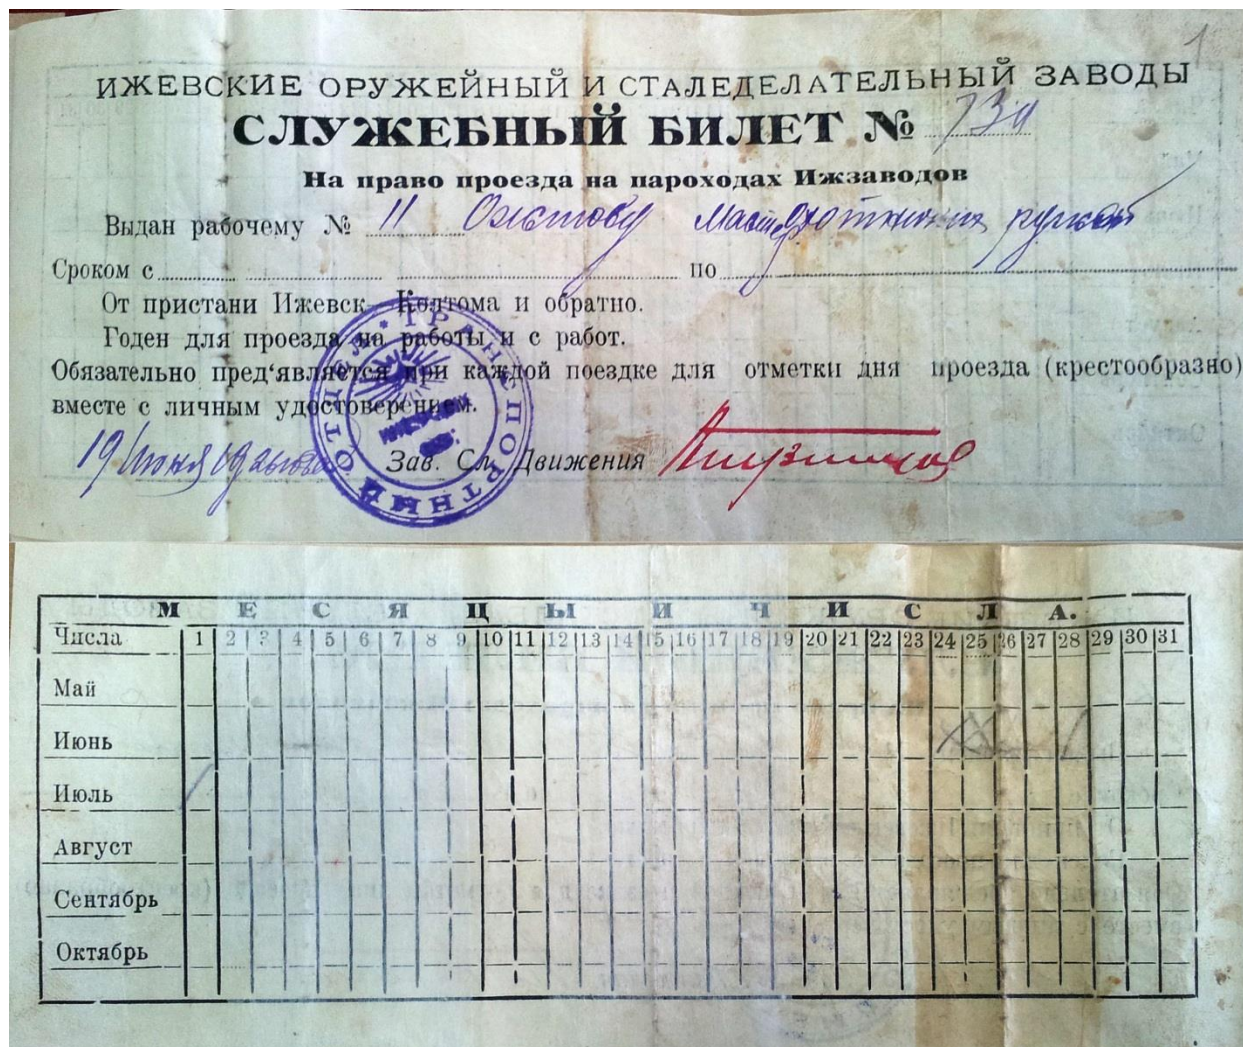 1
ИЖЕВСКИЕ ОРУЖЕЙНЫЙ И СТАЛЕДЕЛАТЕЛЬНЫЙ ЗАВОДЫ
СЛУЖЕБНЫЙ БИЛЕТ №
На право проезда на пароходах Ижзаводов
Выдан рабочему № 11
Сроком с по
От пристани Ижевск—Колтома и обратно.
Годен для проезда на работы и с работ.
Обязательно пред'является при каждой поездке для отметки дня проезда (крестообразно)
вместе с личным удостоверением.
19 Июня Зав. Сл. Движения
ТРАНСПОРТНЫЙ ОТДЕЛ
МЕСЯЦЫ И ЧИСЛА.
Числа 1 2 3 4 5 6 7 8 9 10 11 12 13 14 15 16 17 18 19 20 21 22 23 24 25 26 27 28 29 30 31
Май
Июнь
Июль
Август
Сентябрь
Октябрь